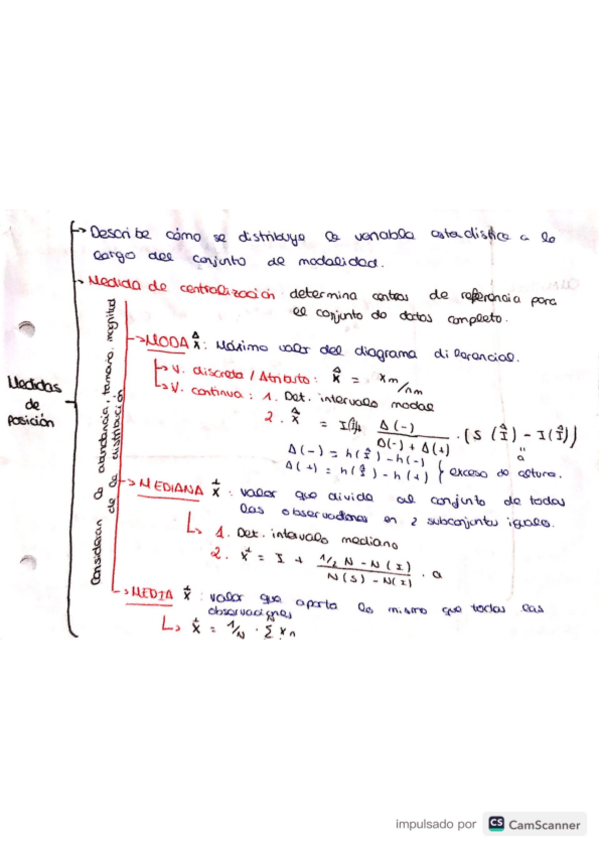 Describe cómo se distribuye la variable estadística a lo
largo del conjunto de modalidad.
Medida de centralización: determina centros de referencia para
el conjunto de datos completo.
Medidas
de
Posición
Consideran la abundancia, tamaño, magnitud
de la distribución
→ MODA x̂ : Máximo valor del diagrama diferencial.
V. discreta / Atributo: x̂ = xm/nm
V. continua: 1. Det. intervalo modal
2. x̂ = I(Î) + Δ(-) / Δ(-) + Δ(+) · (S(Î) - I(Î))
a
Δ(-) = h(î) - h(-)
Δ(+) = h(î) - h(+) } exceso de altura.
→ MEDIANA x⁺ : valor que divide al conjunto de todas
las observaciones en 2 subconjuntos iguales.
1. Det. intervalo mediano
2. x⁺ = I + 1/2 N - N(I) / N(S) - N(I) · a
→ MEDIA x⁺ : valor que aporta lo mismo que todas las
observaciones
x⁺ = 1/N · Σ xn
impulsado por CS CamScanner